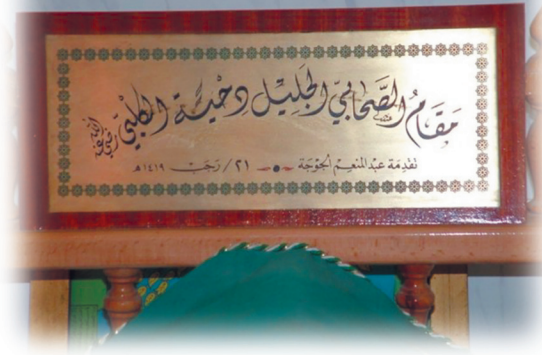 مَقَامُ الصَّحَابِيِّ الجَلِيْل دِحْيَة الكَلْبِيّ رَضِيَ اللهُ عَنْهُ
تقدِمَة عبْد المنعِم الجوجَة ٢١/ رَجَبْ ١٤١٩هـ